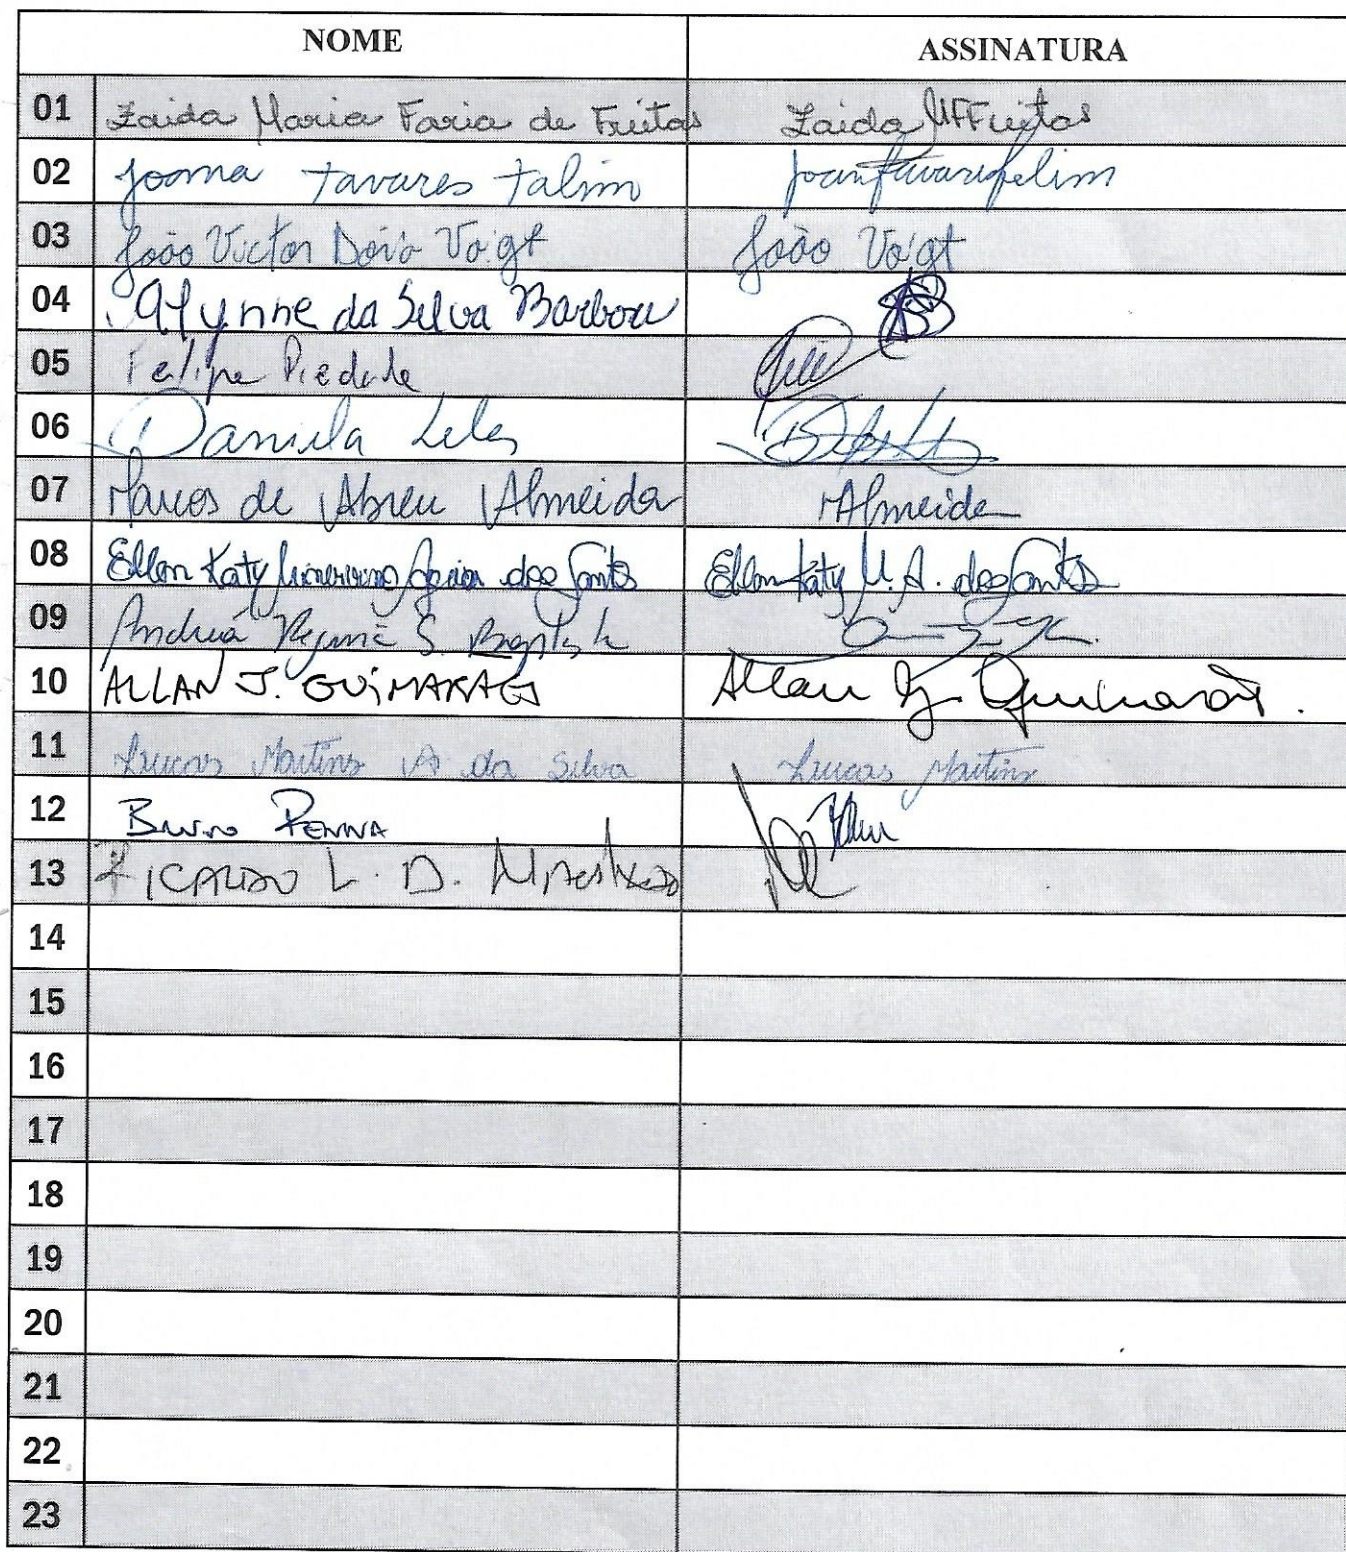 NOME ASSINATURA
01 Zaida Maria Faria de Freitas Zaida MFFreitas
02 Joana Tavares Talim
03 João Victor Voigt João Voigt
04 da Silva Barbosa
05 Felipe Piedade
06 Daniela Leles
07 Marcos de Abreu Almeida MAlmeida
08 Ellen Katy dos Santos Ellen Katy M. A. dos Santos
09 S.
10 ALLAN J. GUIMARAES Allan J. Guimarães.
11 Lucas Martins A da Silva Lucas Martins
12 Bruno PENNA
13 RICARDO L. D. MACHADO
14
15
16
17
18
19
20
21
22
23